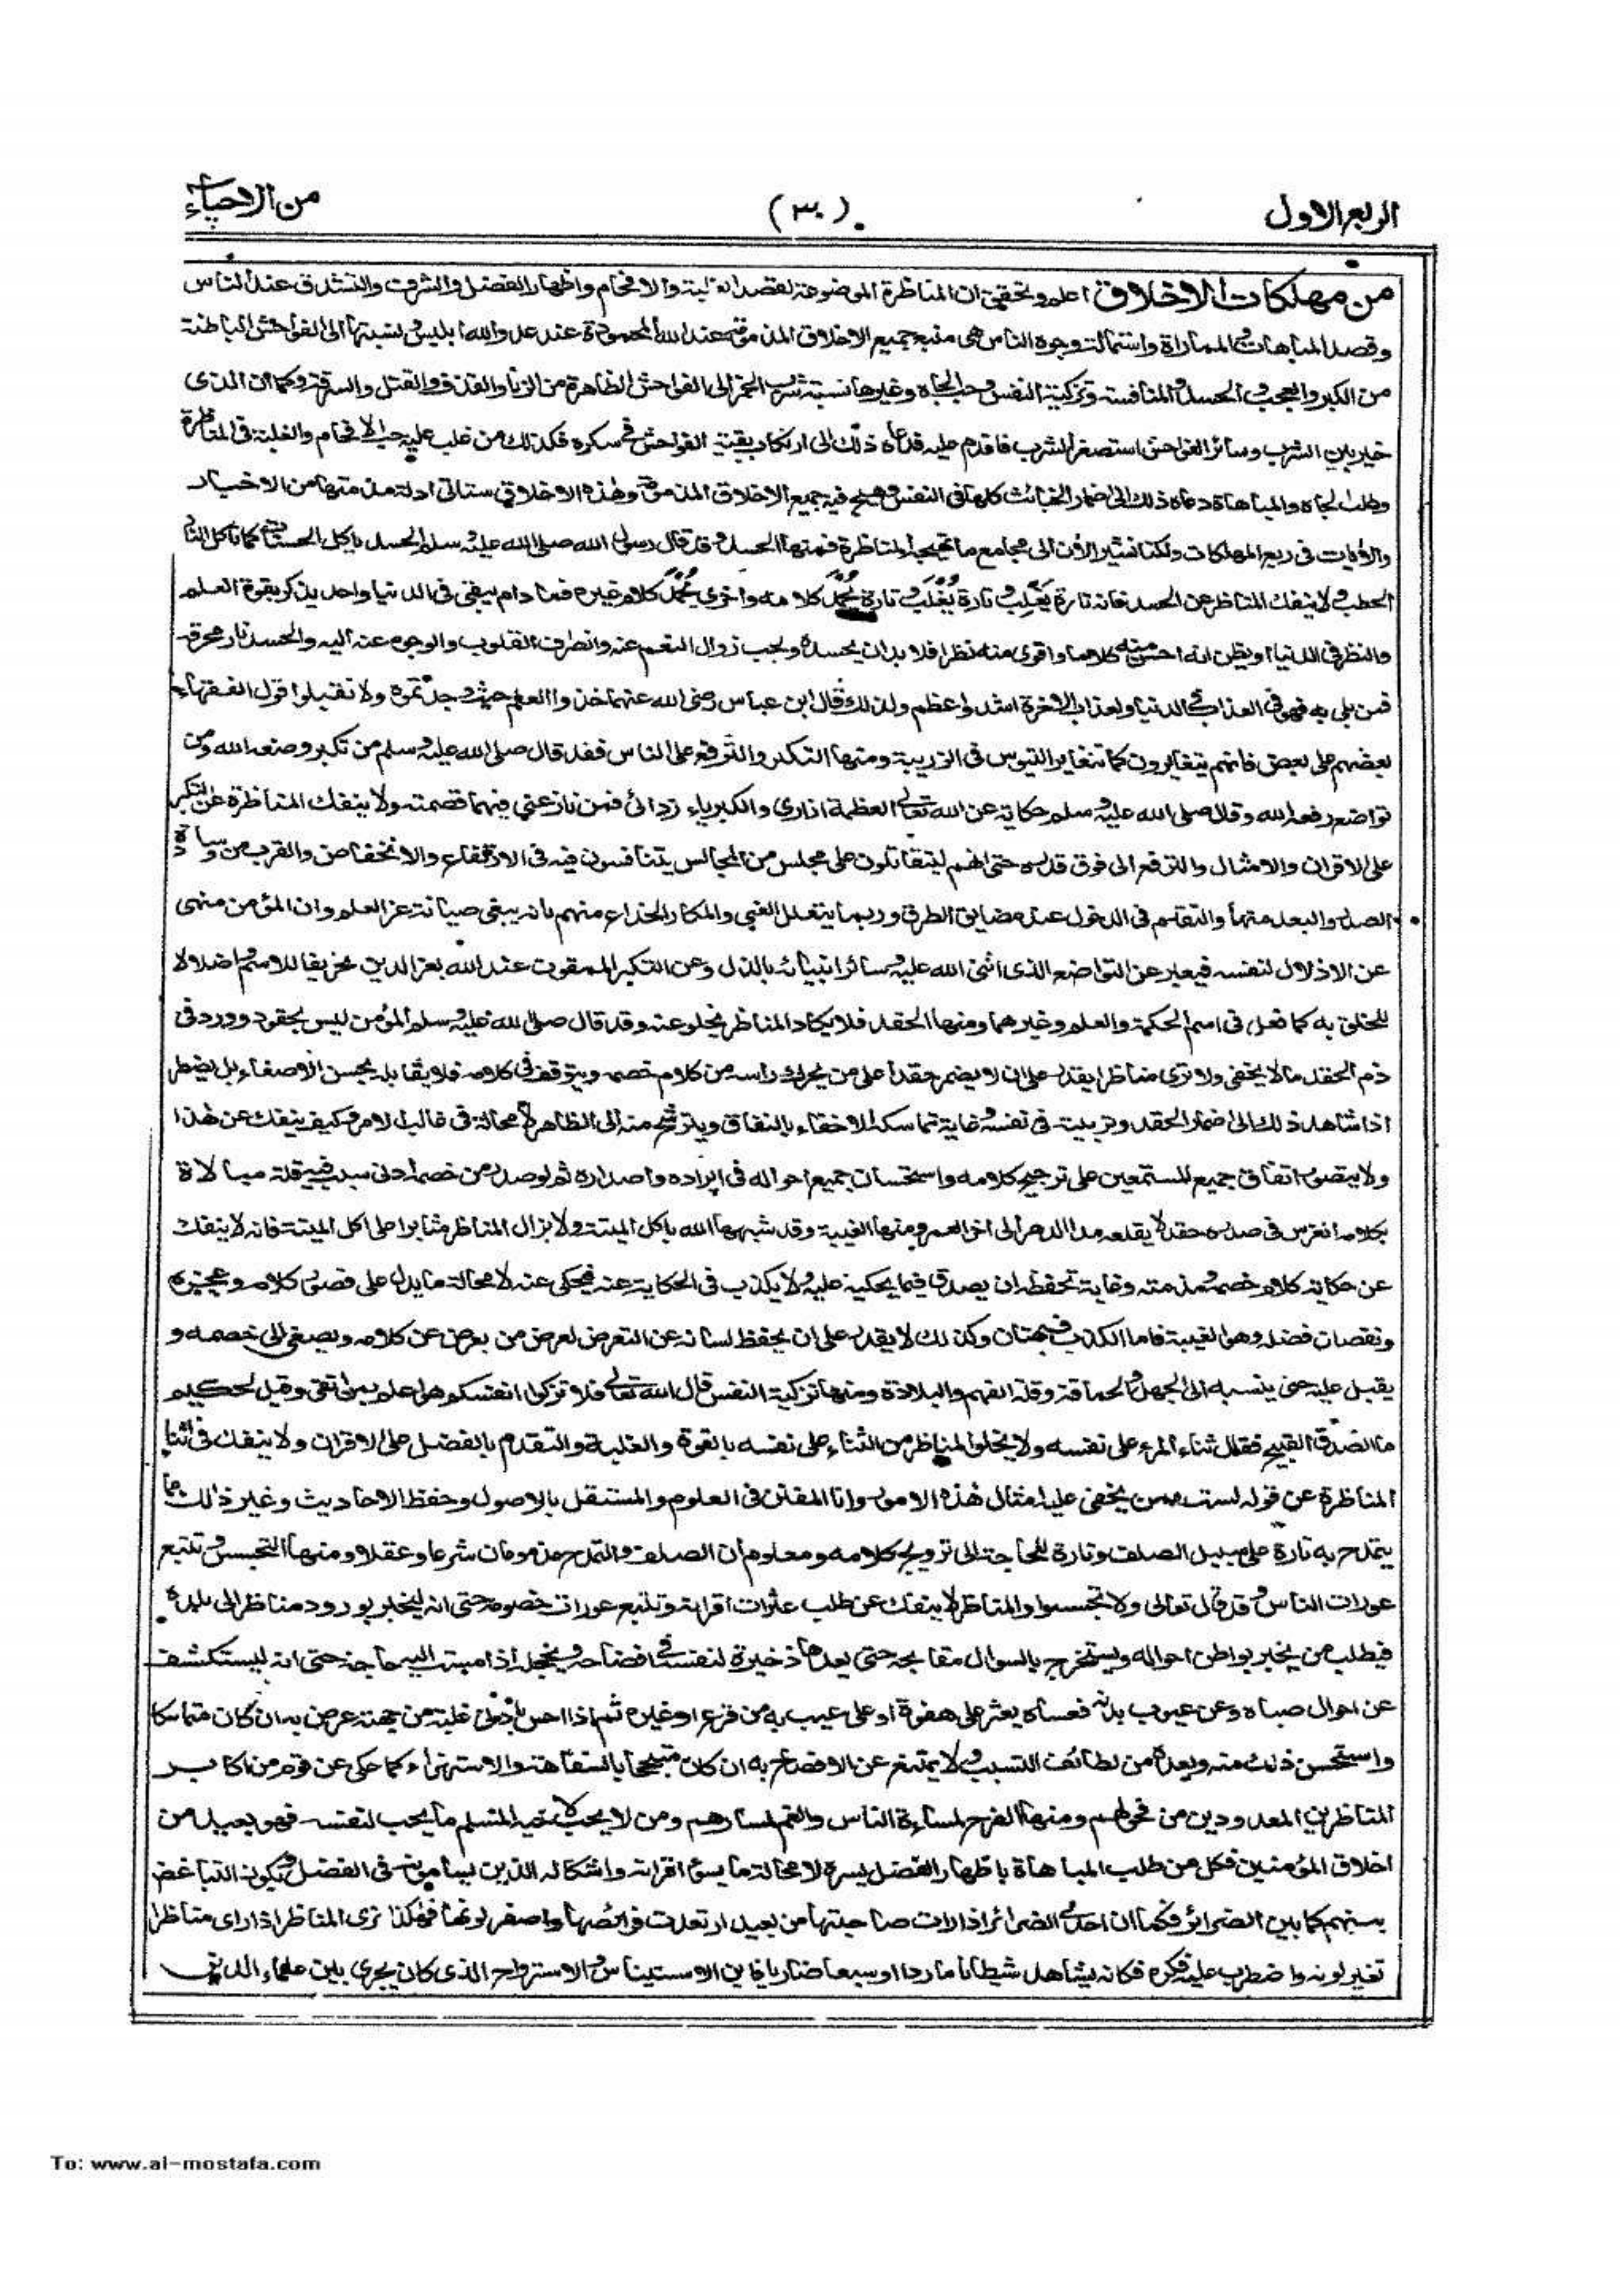 الربع الاول
(٣٠)
من الاحياء
من مهلكات الاخلاق اعلم وتحقق ان المناظرة الموضوعة لقصد الغلبة والافحام واظهار الفضل والشرف والتشدق عند الناس
وقصد المباهات والمماراة واستمالة وجوه الناس هى منبع جميع الاخلاق المذمومة عند الله المحمودة عند عدو الله ابليس ونسبتها الى الفواحش الباطنة
من الكبر والعجب والحسد والمنافسة وتزكية النفس وحب الجاه وغيرها نسبة شرب الخمر الى الفواحش الظاهرة من الزنا والقذف والقتل والسرقة وكما ان الذى
خير بين الشرب وسائر الفواحش استصغر الشرب فاقدم عليه فدعاه ذلك الى ارتكاب بقية الفواحش فى سكره فكذلك من غلب عليه حب الافحام والغلبة فى المناظرة
وطلب الجاه والمباهاة دعاه ذلك الى اضمار الخبائث كلها فى النفس وهيج فيه جميع الاخلاق المذمومة وهذه الاخلاق ستاتى ادلة مذمتها من الاخبار
والايات فى ربع المهلكات ولكنا نشير الان الى مجامع ما تهيجه المناظرة فمنها الحسد وقد قال رسول الله صلى الله عليه وسلم الحسد ياكل الحسنات كما تاكل النار
الحطب ولا ينفك المناظر عن الحسد فانه تارة يَغلِب وتارة يُغلَب وتارة يُحمَد كلامه واخرى يُحمَد كلام غيره فما دام يبقى فى الدنيا واحد يذكر بقوة العلم
والنظر فى الدنيا او يظن انه احسن منه كلاما واقوى منه نظرا فلا بد ان يحسده ويحب زوال النعم عنه وانصراف القلوب والوجوه عنه اليه والحسد نار محرقة
فمن بلى به فهو فى العذاب فى الدنيا ولعذاب الاخرة اشد واعظم ولذلك قال ابن عباس رضى الله عنهما خذوا العلم حيث وجدتموه ولا تقبلوا قول الفقهاء
بعضهم على بعض فانهم يتغايرون كما تتغاير التيوس فى الزريبة ومنها التكبر والترفع على الناس فقد قال صلى الله عليه وسلم من تكبر وضعه الله ومن
تواضع رفعه الله وقال صلى الله عليه وسلم حكاية عن الله تعالى العظمة ازارى والكبرياء ردائى فمن نازعنى فيهما قصمته ولا ينفك المناظرة عن التكبر
على الاقران والامثال والترفع الى فوق قدره حتى انهم ليتقاتلون على مجلس من المجالس يتنافسون فيه فى الارتفاع والانخفاض والقرب من وسادة
الصدر والبعد منها والتقدم فى الدخول عند مضايق الطرق وربما يتعلل الغبى والمكار الخداع منهم بانه يبقى صيانة عز العلم وان المؤمن منهى
عن الاذلال لنفسه فيعبر عن التواضع الذى اثنى الله عليه وسائر انبيائه بالذل وعن التكبر الممقوت عند الله بعز الدين تحريفا للاسم واضلالا
للخلق به كما فعل فى اسم الحكمة والعلم وغيرهما ومنها الحقد فلا يكاد المناظر يخلو عنه وقد قال صلى الله عليه وسلم المؤمن ليس بحقود وورد فى
ذم الحقد ما لا يخفى ولا ترى مناظرا يقدر على ان لا يضمر حقدا على من يحرك راسه من كلام خصمه ويتوقف فى كلامه فلا يقابله بحسن الاصغاء بل يضطر
اذا شاهد ذلك الى اضمار الحقد وتربيته فى نفسه وغاية تماسكه الاخفاء بالنفاق ويترشح منه الى الظاهر لا محالة فى غالب الامر وكيف ينفك عن هذا
ولا يتصور اتفاق جميع المستمعين على ترجيح كلامه واستحسان جميع احواله فى ايراده واصداره ثم لو صدر من خصمه ادنى سبب فيه قلة مبالاة
بكلامه انغرس فى صدره حقد لا يقلعه مدا الدهر الى اخر العمر ومنها الغيبة وقد شبهها الله باكل الميتة ولا يزال المناظر مثابرا على اكل الميتة فانه لا ينفك
عن حكاية كلام خصمه ومذمته وغاية تحفظه ان يصدق فيما يحكيه عليه ولا يكذب فى الحكاية عنه فيحكى عنه لا محالة ما يدل على قصور كلامه وعجزه
ونقصان فضله وهو الغيبة فاما الكذب فبهتان وكذلك لا يقدر على ان يحفظ لسانه عن التعرض لعرض من يعرض عن كلامه ويصغى الى خصمه و
يقبل عليه حتى ينسبه الى الجهل والحماقة وقلة الفهم والبلادة ومنها تزكية النفس قال الله تعالى فلا تزكوا انفسكم هو اعلم بمن اتقى وقيل لحكيم
ما الصدق القبيح فقال ثناء المرء على نفسه ولا يخلو المناظر من الثناء على نفسه بالقوة والغلبة والتقدم بالفضل على الاقران ولا ينفك فى اثناء
المناظرة عن قوله لست ممن يخفى عليه امثال هذه الامور وانا المفنن فى العلوم والمستقل بالاصول وحفظ الاحاديث وغير ذلك مما
يتمدح به تارة على سبيل الصلف وتارة للحاجة الى ترويج كلامه ومعلوم ان الصلف والتمدح مذمومان شرعا وعقلا ومنها التجسس وتتبع
عورات الناس وقد قال تعالى ولا تجسسوا والمناظر لا ينفك عن طلب عثرات اقرانه وتتبع عورات خصومه حتى انه ليخبر بورود مناظر الى بلده
فيطلب من يخبر بواطن احواله ويستخرج بالسوال مقابحه حتى يعدها ذخيرة لنفسه فى افضاحه وتخجيله اذا مست اليه حاجة حتى انه ليستكشف
عن احوال صباه وعن عيوب بدنه فعساه يعثر على هفوة او على عيب به من قرع او غيره ثم اذا احس بادنى غلبة من جهته عرض به ان كان متماسكا
واستحسن ذلك منه ويعده من لطائف التسبب ولا يمتنع عن الافضاح به ان كان متبجحا بالسفاهة والاستهزاء كما حكى عن قوم من اكابر
المناظرين المعدودين من فحولهم ومنها الفرح لمساءة الناس والغم لمسارهم ومن لا يحب لاخيه المسلم ما يحب لنفسه فهو بعيد من
اخلاق المؤمنين فكل من طلب المباهاة باظهار الفضل يسره لا محالة ما يسوء اقرانه واشكاله الذين يسامونه فى الفضل ويكون التباغض
بينهم كما بين الضرائر فكما ان احدى الضرائر اذا رات صاحبتها من بعيد ارتعدت فرائصها واصفر لونها فهكذا ترى المناظر اذا راى مناظرا
تغير لونه واضطرب عليه فكره فكانه يشاهد شيطانا ماردا او سبعا ضاريا فاين الاستيناس والاسترواح الذى كان يجرى بين علماء الدين
To: www.al-mostafa.com